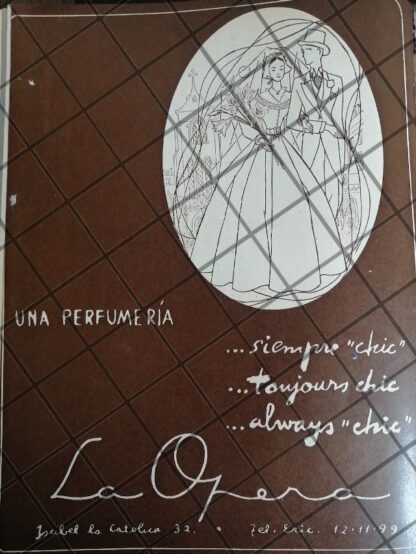 UNA PERFUMERÍA
...siempre "chic"
...toujours chic
...always "chic"
La Opera
Isabel la Catolica 32. * Tel. Eric. 12-11-99